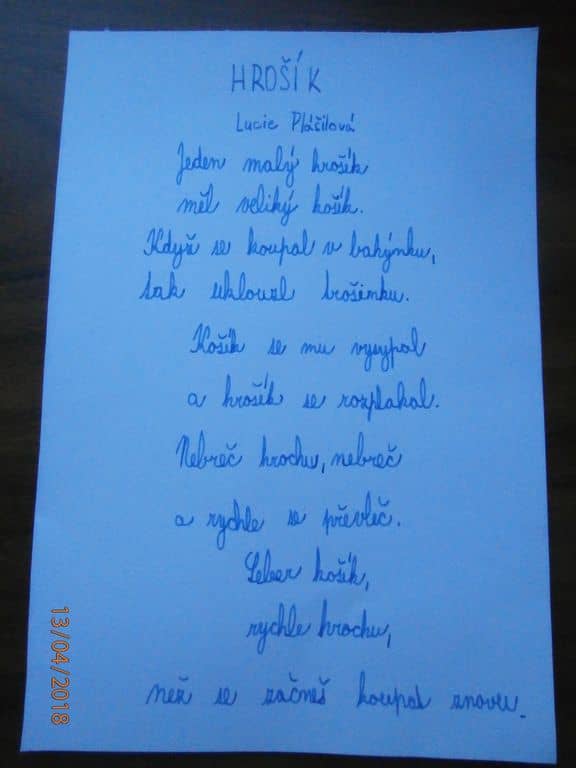 HROŠÍK
Lucie Plášilová
Jeden malý hrošík
měl veliký košík.
Když se koupal v bahýnku,
tak uklouzl trošinku.
Košík se mu vysypal
a hrošík se rozplakal.
Nebreč hrochu, nebreč
a rychle se převleč.
Seber košík,
rychle hrochu,
než se začneš koupat znovu.
13/04/2018